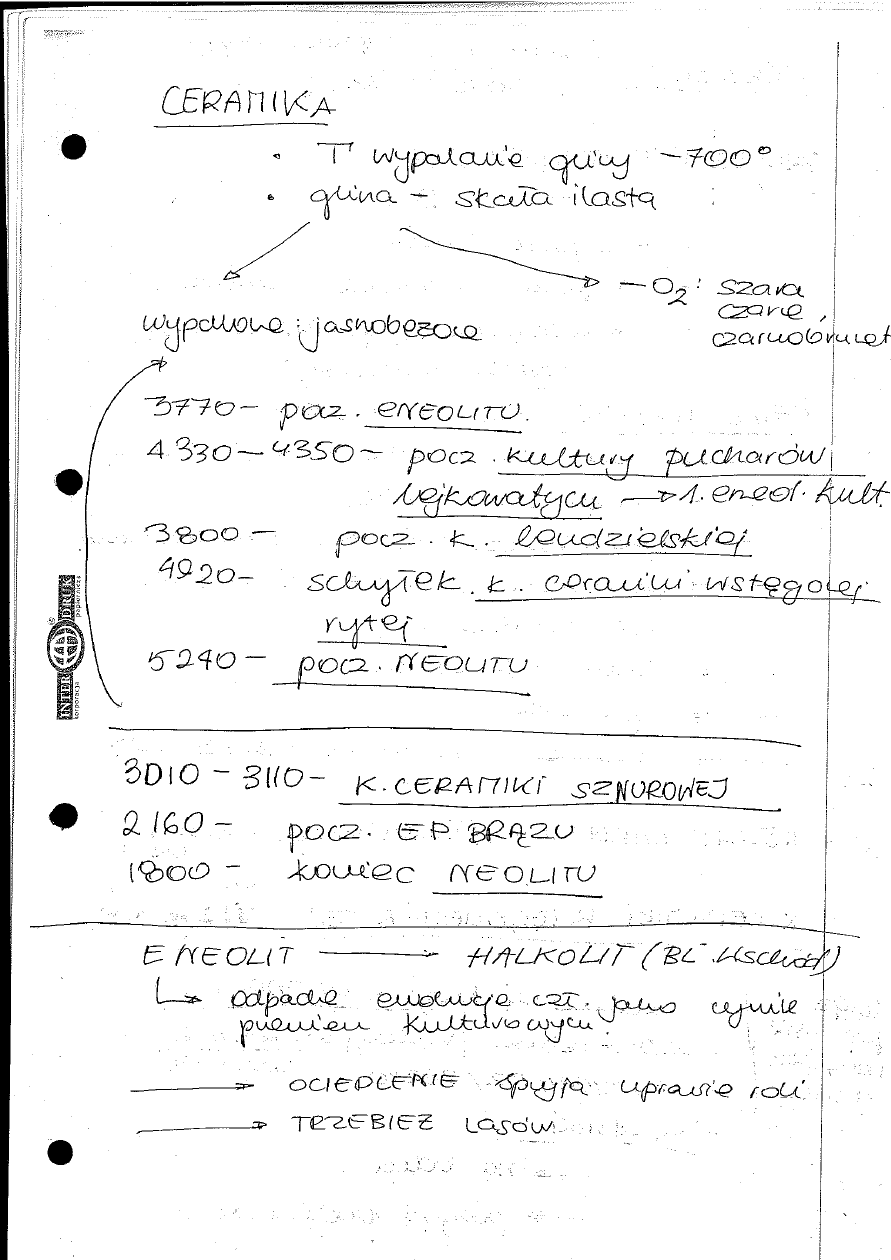 CERAMIKA
• T° wypalanie gliny ~700°
• glina – skała ilasta
– O2: szara
czarne,
czarnobrunet
wypalone: jasnobeżowe
3770 – pocz. ENEOLITU.
4330 – 4350 – pocz. kultury pucharów
lejkowatych → 1. eneol. kult.
3800 – pocz. k. lendzielskiej
4920 – schyłek k. ceramiki wstęgowej
rytej
5240 – pocz. NEOLITU
INTER DRUK
korporacja papiernicza
3010 – 3110 – K. CERAMIKI SZNUROWEJ
2160 – pocz. EP. BRĄZU
1800 – koniec NEOLITU
ENEOLIT → HALKOLIT (BL. Wschód)
↳ odpada ewolucja czł. jako czynnik
przemian kulturowych.
→ OCIEPLENIE sprzyja uprawie roli
→ TRZEBIEŻ LASÓW